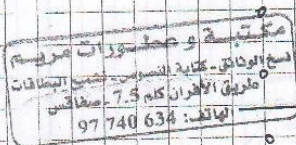 مكتبة و منشورات مريم
نسخ الوثائق - كتابة النصوص - تلميع البطاقات
طريق الأفران كلم 7.5 - صفاقس
الهاتف: 97 740 634